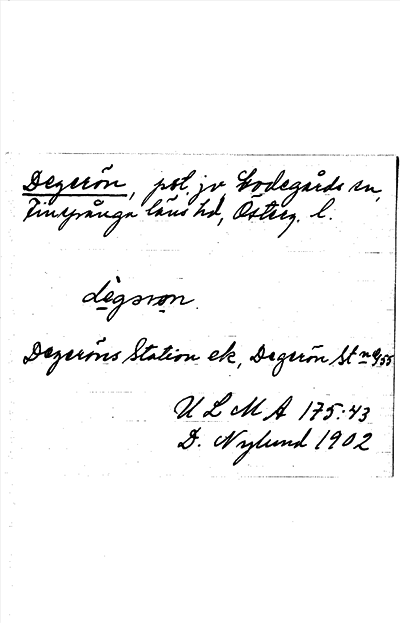 Degerön, pst. jv, Godegårds sn,
Finspånga läns hd, Österg. l.
dègərọn.
Degeröns Station ek, Degerön St n 9/55
U L M A 175:43
D. Nylund 1902